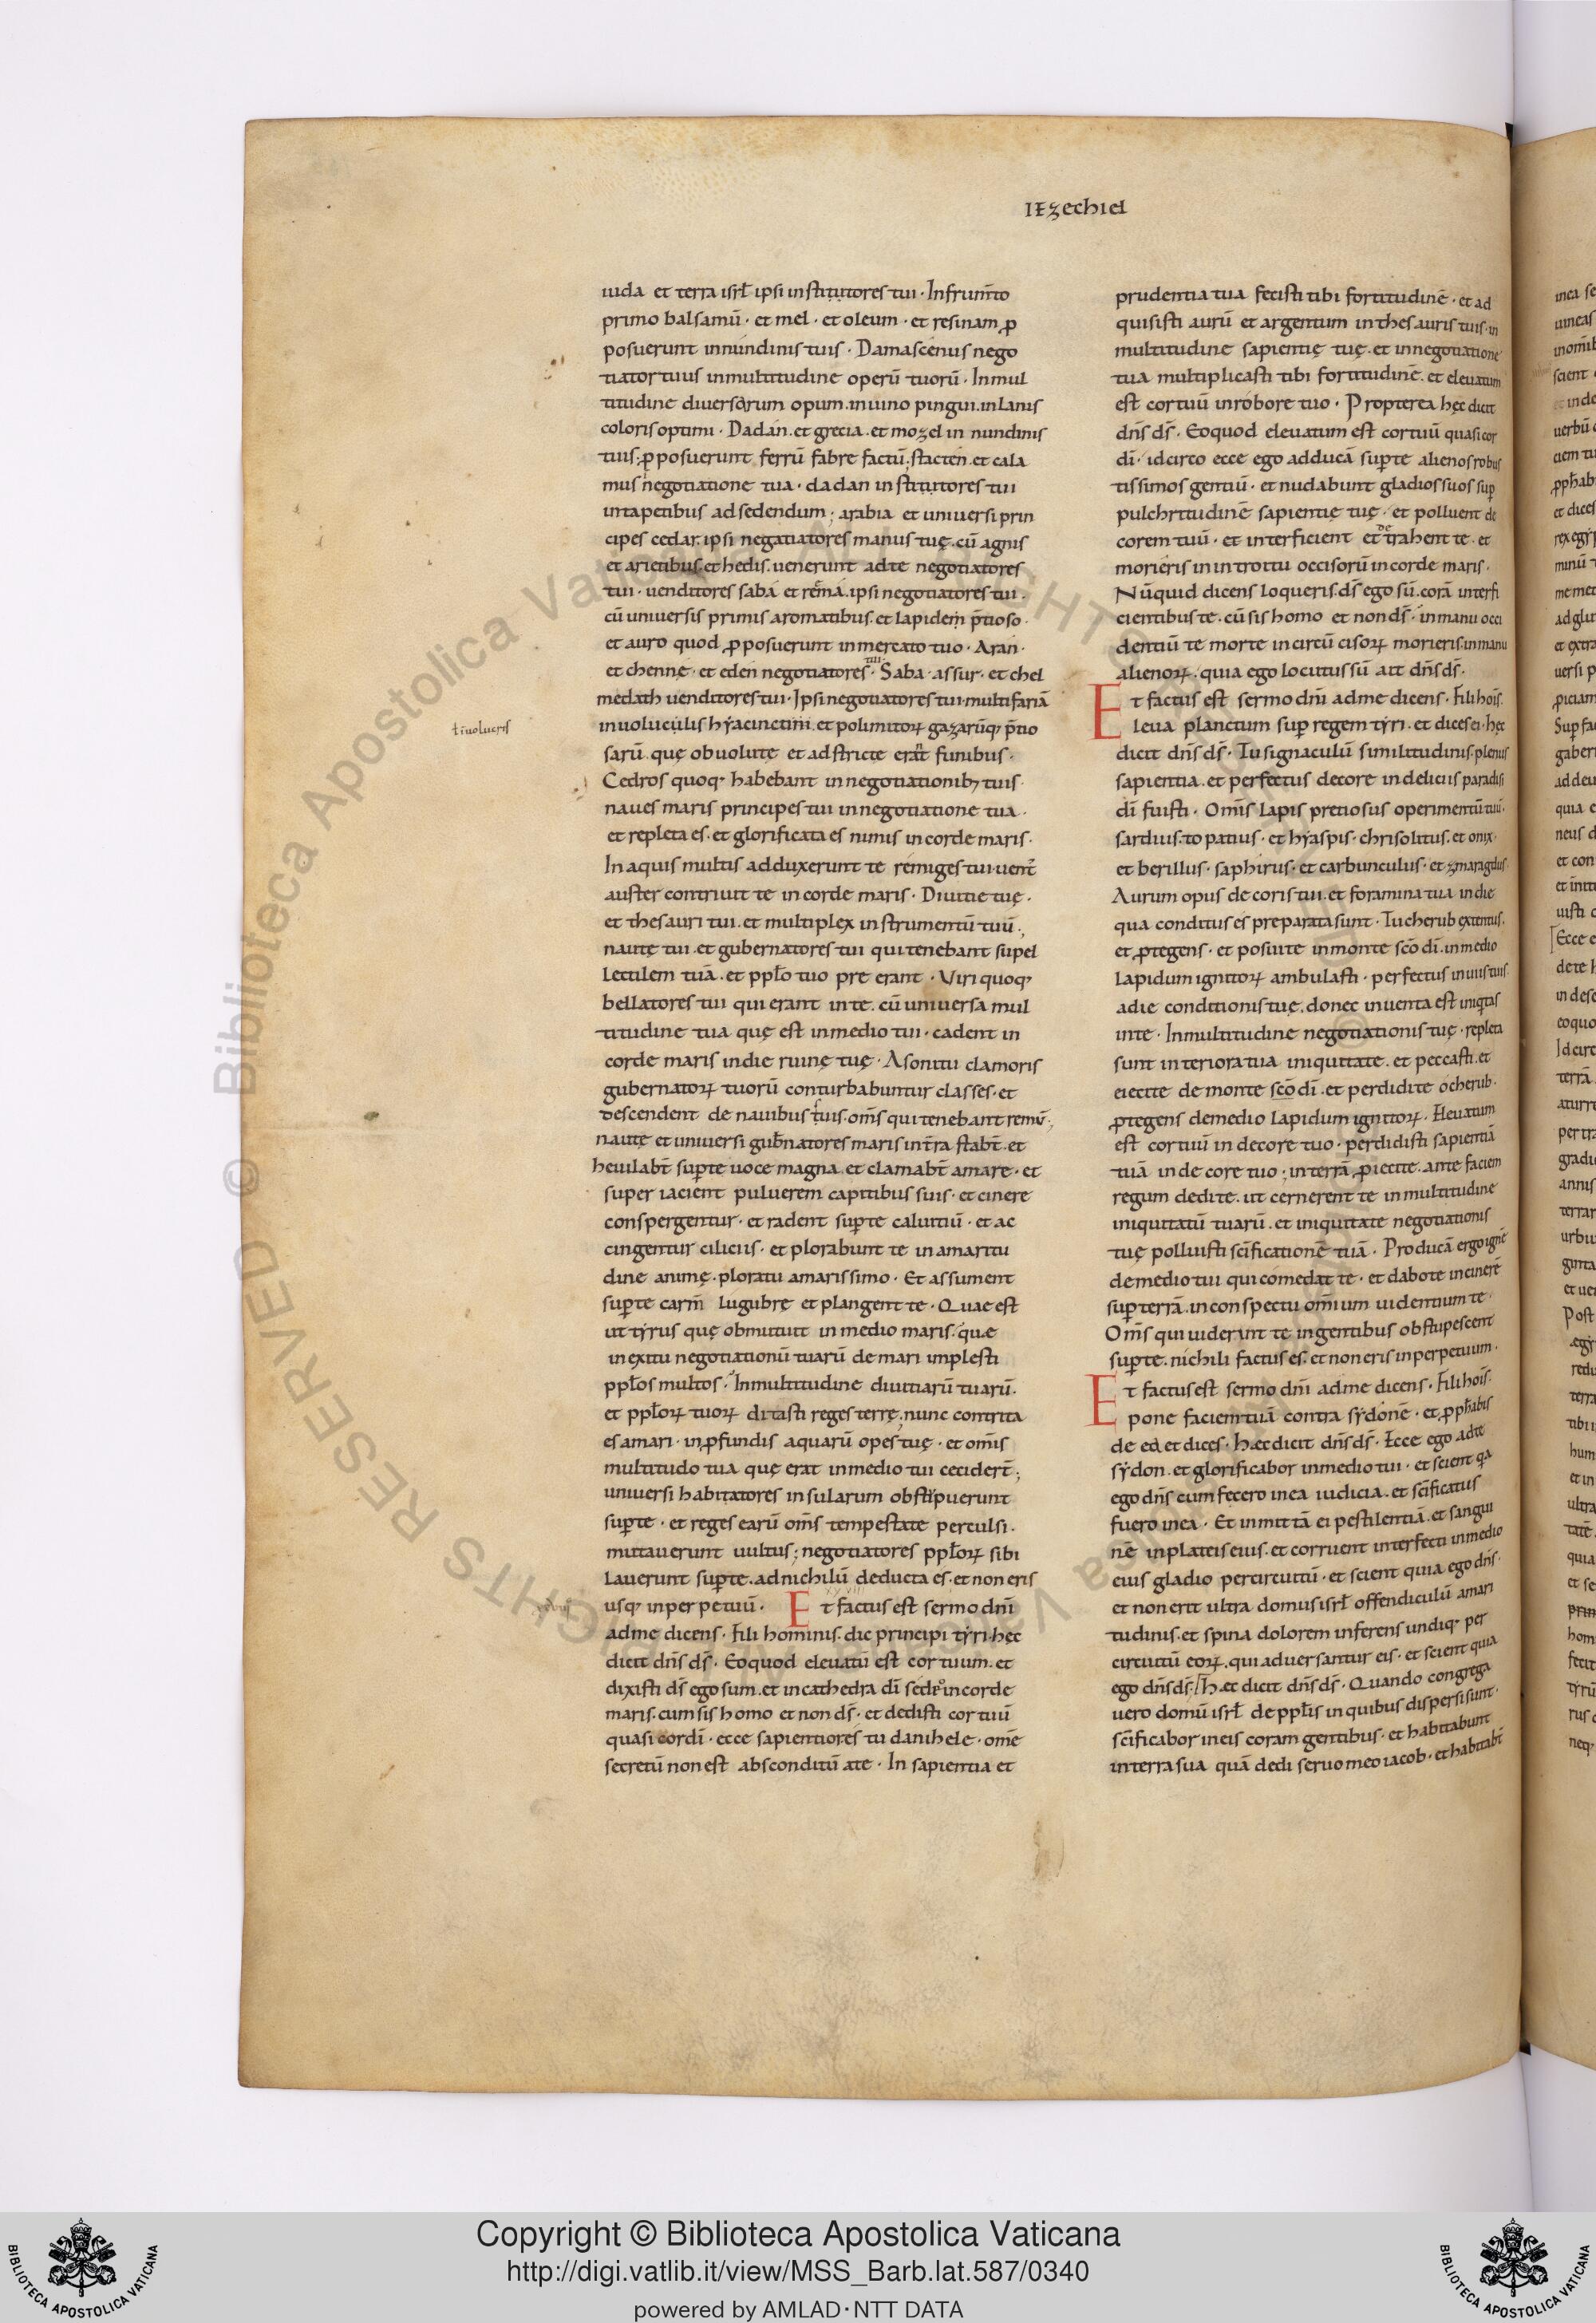 IEzechiel
iuda et terra isrł ipsi institutores tui · Infrum̄to
primo balsamū · et mel · et oleum · et resinam ꝓ
posuerunt innundinis tuis · Damascenus nego
tiator tuus inmultitudine operū tuorū · Inmul
titudine diversarum opum. inuino pingui. inlanis
coloris optimi · Dadan. et grecia. et mozel in nundinis
tuis; ꝓposuerunt ferrū fabre factū; stacten. et cala
mus negotiatione tua · dadan institutores tui
intapetibus adsedendum; arabia et uniuersi prin
cipes cedar. ipsi negatiatores manus tuę. cū agnis
et arietibus. et hedis. uenerunt adte negotiatores
tui · uenditores saba et rema. ipsi negotiatores tui ·
cū uniuersis primis aromatibus. et lapidem p̄tioso ·
et auro quod ꝓposuerunt inmercato tuo · Aran ·
et chenne · et eden negotiatores tui · Saba · assur · et chel
medath uenditores tui · Ipsi negotiatores tui · multifariā
inuoluculis hyacinctini. et polimitoꝝ gazarūq; p̄tio
ł inuolucris
sarū. quę obuolutę et adstricte erāt funibus ·
Cedros quoq; habebant innegotiationib; tuis ·
naues maris principes tui innegotiatione tua ·
et repleta es · et glorificata es nimis incorde maris ·
In aquis multis adduxerunt te remiges tui · uent̄
auster contriuit te in corde maris · Diuitie tuę ·
et thesauri tui. et multiplex instrumentū tuū;
nautę tui · et gubernatores tui qui tenebant supel
lectilem tuā. et ppło tuo pre erant · Viri quoq;
bellatores tui qui erant inte. cū uniuersa mul
titudine tua quę est inmedio tui · cadent in
corde maris indie ruinę tuę · Asonitu clamoris
gubernatoꝝ tuorū conturbabuntur classes · et
descendent de nauibus suis. om̄s qui tenebant remū;
nautę et uniuersi gub̄natores maris int̄ra stab̄t. et
heiulab̄t sup̱te uoce magna. et clamab̄t amare · et
super iacient puluerem capitibus suis · et cinere
conspergentur · et radent sup̱te caluitiū · et ac
cingentur ciliciis · et plorabunt te inamaritu
dine animę · ploratu amarissimo · Et assument
sup̱te carm̄ lugubrę et plangent te · Quae est
ut tyrus quę obmutuit inmedio maris. quę
inexitu negotiationū tuarū de mari implesti
ppłos multos · Inmultitudine diuitiarū tuarū ·
et ppłoꝝ tuoꝝ ditasti reges terrę; nunc contrita
es amari · inꝓfundis aquarū opes tuę · et omīs
multitudo tua quę erat inmedio tui cecider̄t;
uniuersi habitatores insularum obstipuerunt
sup̱te · et reges earū om̄s tempestate perculsi ·
mutauerunt uultus; negotiatores ppłoꝝ sibi
lauerunt sup̱te. adnichilū deducta es · et non eris
usq; inperpetuū · Et factus est sermo dn̄i
adme dicens · Fili hominis. dic principi tyri · hęc
dicit dn̄s ds̄ · Eoquod eleuatū est cor tuum. et
dixisti ds̄ ego sum. et incathedra dī sedi incorde
maris. cum sis homo et non ds̄ · et dedisti cor tuū
quasi cordī · ecce sapientiores tu danihele · omē
secretū non est absconditū ate · In sapientia et
prudentia tua fecisti tibi fortitudinē · et ad
quisisti aurū et argentum inthesauris tuis · in
multitudine sapientię tuę. et innegotiatione
tua multiplicasti tibi fortitudinē. et eleuatum
est cor tuū inrobore tuo · Propterea hęc dicit
dn̄s ds̄ · Eoquod eleuatum est cor tuū quasi cor
dī · idcirco ecce ego adducā sup̱te alienos robus
tissimos gentiū · et nudabunt gladios suos sup̱
pulchritudinē sapientię tuę · et polluent de
corem tuū · et interficient et detrahent te · et
morieris in introitu occisorū incorde maris ·
Nūquid dicens loqueris. ds̄ ego sū. corā interfi
cientibus te. cū sis homo et non ds̄ · inmanu occi
dentiū te morte incircū cisoꝝ morieris. inmanu
alienoꝝ. quia ego locutus sū ait dn̄s ds̄ ·
Et factus est sermo dn̄i adme dicens · Fili hoīs.
leua planctum sup̱ regem tyri · et dices ei · hęc
dicit dn̄s ds̄ · Tu signaculū similitudinis. plenus
sapientia. et perfectus decore indeliciis paradisi
dī fuisti · Omīs lapis pretiosus operimentū tuū ·
sardius. topatius · et hyaspis · chrisolitus. et onix ·
et berillus · saphirus · et carbunculus · et zmaragdus
Aurum opus decoris tui. et foramina tua indie
qua conditus es preparata sunt · Tu cherub extentus.
et ꝓtegens · et posuite inmonte sc̄o dī. inmedio
lapidum ignitoꝝ ambulasti · perfectus inuiis tuis
adie conditionis tuę. donec inuenta est iniqtas
inte · Inmultitudine negotiationis tuę · repleta
sunt interiora tua iniquitate. et peccasti. et
eiecite de monte sc̄o dī · et perdidite ocherub ·
ꝓtegens demedio lapidum ignitoꝝ · Eleuatum
est cor tuū in decore tuo · perdidisti sapientiā
tuā in decore tuo; interrā ꝓiecite. ante faciem
regum dedite. ut cernerent te inmultitudine
iniquitatū tuarū. et iniquitate negotiationis
tuę polluisti sc̄ificationē tuā · Producā ergo ignē
demedio tui qui comedat te · et dabo te incinerē
sup̱ terrā. inconspectu omīum uidentium te ·
Om̄s qui uiderint te ingentibus obstupescent
sup̱te. nichili factus es. et non eris inperpetuum ·
Et factus est sermo dn̄i adme dicens. Fili hoīs.
pone faciem tuā contra sydonē · et ꝓpħabis
de ea et dices · hæc dicit dn̄s ds̄ · Ecce ego adte
sydon. et glorificabor inmedio tui · et scient qa
ego dn̄s cum fecero inea iudicia. et sc̄ificatus
fuero inea · Et inmittā ei pestilentiā. et sangui
nē inplateis eius. et corruent interfecti inmedio
eius gladio percircuitū · et scient quia ego dn̄s ·
et non erit ultra domus isrł offendiculū amari
tudinis. et spina dolorem inferens undiq; per
circuitū eoꝝ. qui aduersantur eis · et scient quia
ego dn̄s ds̄; hæc dicit dn̄s ds̄ · Quando congrega
uero domū isrł de ppłis in quibus dispersi sunt ·
sc̄ificabor ineis coram gentibus · et habitabunt
interra sua quā dedi seruo meo iacob · et habitab̄t
Copyright © Biblioteca Apostolica Vaticana
http://digi.vatlib.it/view/MSS_Barb.lat.587/0340
powered by AMLAD·NTT DATA